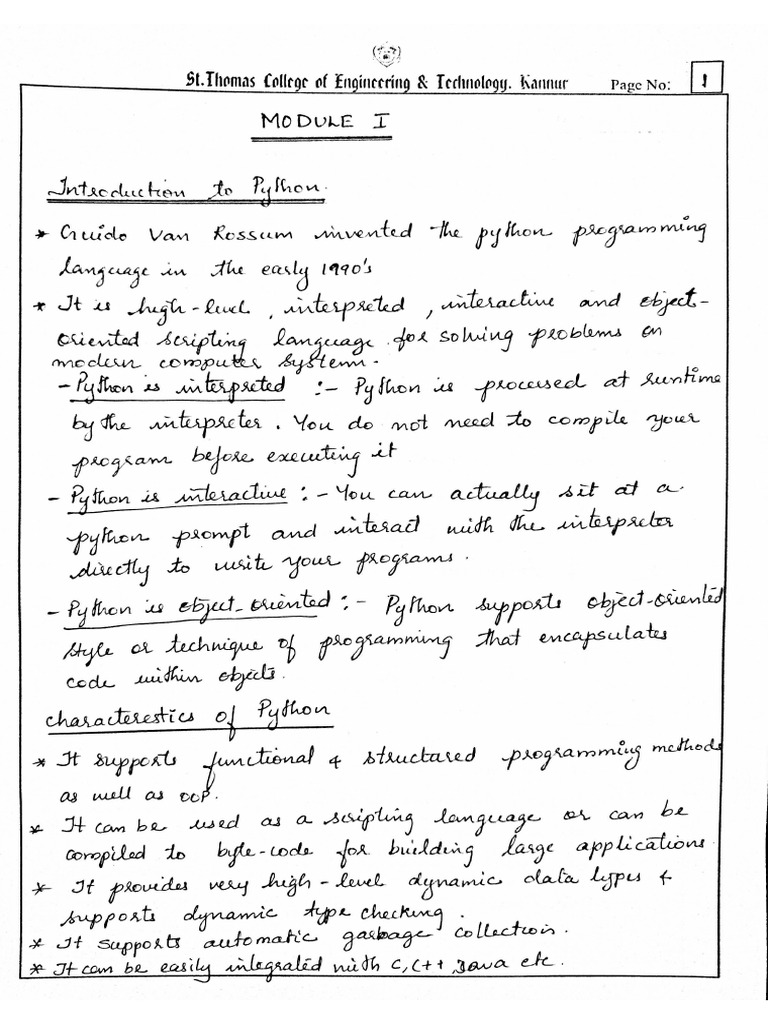 St.Thomas College of Engineering & Technology. Kannur Page No: 1
MODULE I
Introduction to Python.
* Guido Van Rossum invented the python programming
language in the early 1990's
* It is high-level, interpreted, interactive and object-
oriented scripting language for solving problems on
modern computer system.
- Python is interpreted :- Python is processed at runtime
by the interpreter. You do not need to compile your
program before executing it
- Python is interactive :- You can actually sit at a
python prompt and interact with the interpretor
directly to write your programs.
- Python is object-oriented :- Python supports object-oriented
style or technique of programming that encapsulates
code within objects.
characterestics of Python
* It supports functional & structured programming methods
as well as OOP.
* It can be used as a scripting language or can be
compiled to byte-code for building large applications
* It provides very high-level dynamic data types &
supports dynamic type checking.
* It supports automatic garbage collection.
* It can be easily integrated with C, C++, Java etc.